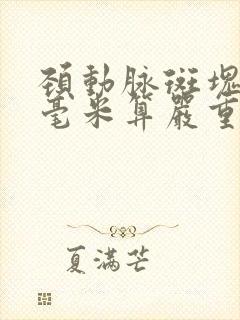 頸動脉斑塊
毫米算嚴重
夏滿芒